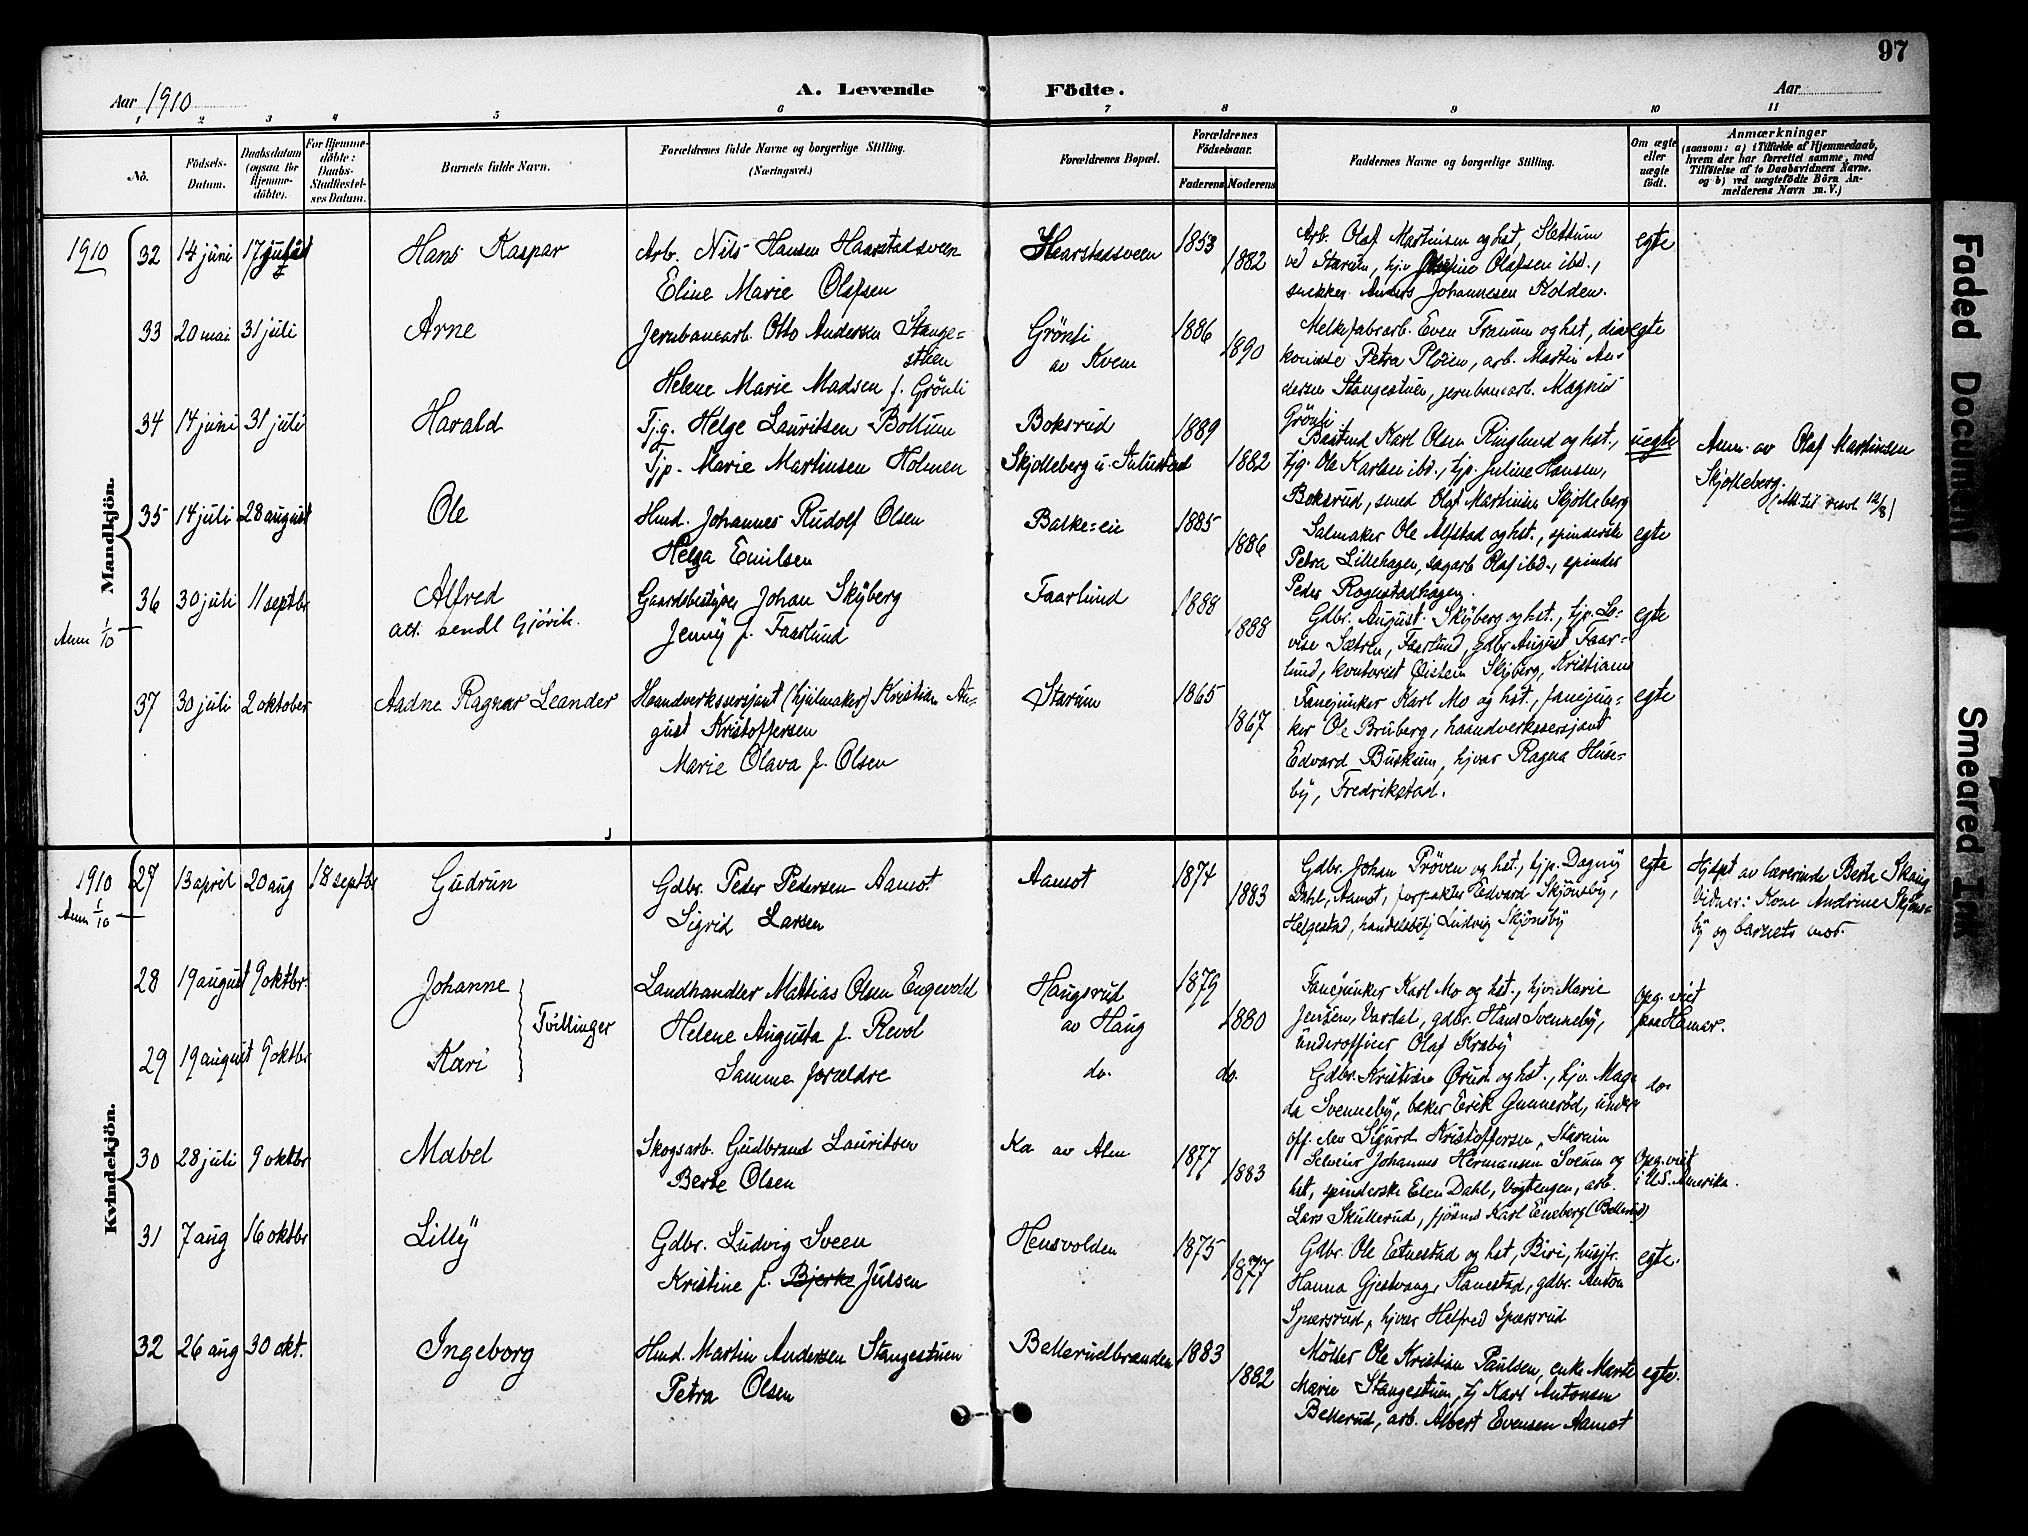 97
Aar 1910
A. Levende Födte.
Aar
1 2 3 4 5 6 7 8 9 10 11
No.
Födsels-Datum.
Daabsdatum (ogsaa for Hjemme-döbte).
For Hjemme-döbte: Daabs-Stadfæstel-ses Datum.
Barnets fulde Navn.
Forældrenes fulde Navne og borgerlige Stilling. (Næringsvei.)
Forældrenes Bopæl.
Forældrenes Födselsaar.
Faderens Moderens
Faddernes Navne og borgerlige Stilling.
Om ægte eller uægte födt.
Anmærkninger
(saasom: a) i Tilfælde af Hjemmedaab, hvem der har forrettet samme, med Tilföielse af to Daabsvidners Navne. og b) ved uægtefödte Börn An-melderens Navn m. V.)
Mandkjön.
1910 32 14 juni 17 juli Hans Kaspar
Arb. Nils Hansen Haarstadsveen
Eline Marie Olafsen
Haarstadsveen 1853 1882
Arb. Olaf Martinsen og hst, Slettum
ved Starum, hjv. Olafsen ibd.,
snekker Anders Johannesen Kolden.
egte
33 20 mai 31 juli Arne
Jernbanearb. Otto Andersen Stange=
stuen
Helene Marie Madsen f. Grönli
Grönli
av Kvem
1886 1890
Melkefabrarb. Even Traum og hst, dia-
konisse Petra Pløien, arb. Martin An-
dersen Stangestuen, jernbanearb. Magnus
Grönli
egte
34 14 juni 31 juli Harald
Tjg. Helge Lauritsen Bottum
Tjp. Marie Martinsen Holmen
Boksrud
Skjolleberg u.
1889 1882
Karl Olsen Ringlund og hst.,
tjg. Ole Karlsen ibd., tjp. Juline Hansen,
Boksrud, smed Olaf Martinsen Skjolleberg
uegte
Anm. av Olaf Martinsen
Skjolleberg.
(Att til resol 12/8)
35 14 juli 28 august Ole
Hmd. Johannes Rudolf Olsen
Helga Emilsen
Balke=eie
1885 1886
Salmaker Ole Alfstad og hst., spinderske
Petra Lillehagen, sagarb Olaf ibd., spinder
Peder Rognstadhagen.
egte
36 30 juli 11 septbr Alfred
att. sendt Gjövik.
Anm 1/10
Gaardsbestyrer Johan Skÿberg
Jenny f. Faarlund
Faarlund
1888 1888
Gdbr. August Skÿberg og hst., tjp. Lo-
vise Sætren, Faarlund, gdbr. August Faar-
lund, kontorist Øistein Skÿberg, Kristiania
egte
37 30 juli 2 oktober Aadne Ragnar Leander
Haandverkssersjant (hjulmaker) Kristian Au-
gust Kristoffersen
Marie Olava f. Olsen
Starum
1865 1867
Fanejunker Karl Mo og hst., fanejun-
ker Ole Bruberg, haandverkssersjant
Edvard Buskum, hjvær Ragna Huse-
by, Fredrikstad.
egte
Kvindekjön.
1910 27 13 april 20 aug 18 septbr Gudrun
Anm 1/10
Gdbr. Peder Pedersen Aamot
Sigrid Larsen
Aamot
1874 1883
Gdbr. Johan Pröven og hst., tjp. Dagny
Dahl, Aamot, forpakter Edvard Skjönsby,
Helgestad, handelsbetj Ludvig Skjönsby
egte
Hjdøpt av lærerinde Berte Skaug
Vidner: Kone Andrine Skjöns=
by og barnets mor.
28 19 august 9 oktbr. Johanne
Tvillinger
Landhandler Mattias Olsen Engevold
Helene Augusta f. Revol
Haugsrud
av Haug
1879 1880
Fanejunker Karl Mo og hst., hjv. Marie
Jensen, Vardal, gdbr. Hans Svenneby,
underofficer Olaf Kraby
Opg. viet
paa Hamar.
29 19 august 9 oktbr Kari
Samme forældre
do. do.
Gdbr. Kristian Ørud og hst., hjv. Mag-
da Svenneby, baker Erik Gunnerød, under
off. elev Sigurd Kristoffersen, Starum
do.
30 28 juli 9 oktbr Mabel
Skogsarb. Gudbrand Lauritsen
Berte Olsen
Ka av Alm
1877 1883
Selveier Johannes Hermansen Sveum og
hst, spinderske Elen Dahl, Vogtengen, arb.
Lars Skullerud, fjøsm Karl Eneberg (Bellerud)
Opg. viet
i U.S. Amerika.
31 7 aug 16 oktbr Lillÿ
Gdbr. Ludvig Sveen
Kristine f. Bjerke Julsen
Hensvolden
1875 1877
Gdbr. Ole Etnestad og hst, Biri, husjfr.
Hanna Gjestvang, Hanestad, gdbr. Anton
Sparsrud, hjvær Helfred Sparsrud
egte.
32 26 aug 30 okt. Ingeborg
Hmd. Martin Andersen Stangestuen
Petra Olsen
Bellerudbranden
1883 1882
Møller Ole Kristian Paulsen, enke Marte
Marie Stangestuen, tj Karl Antonsen
Bellerud, arb. Albert Evensen Aamot
egte.
Faded Document
Smeared Ink